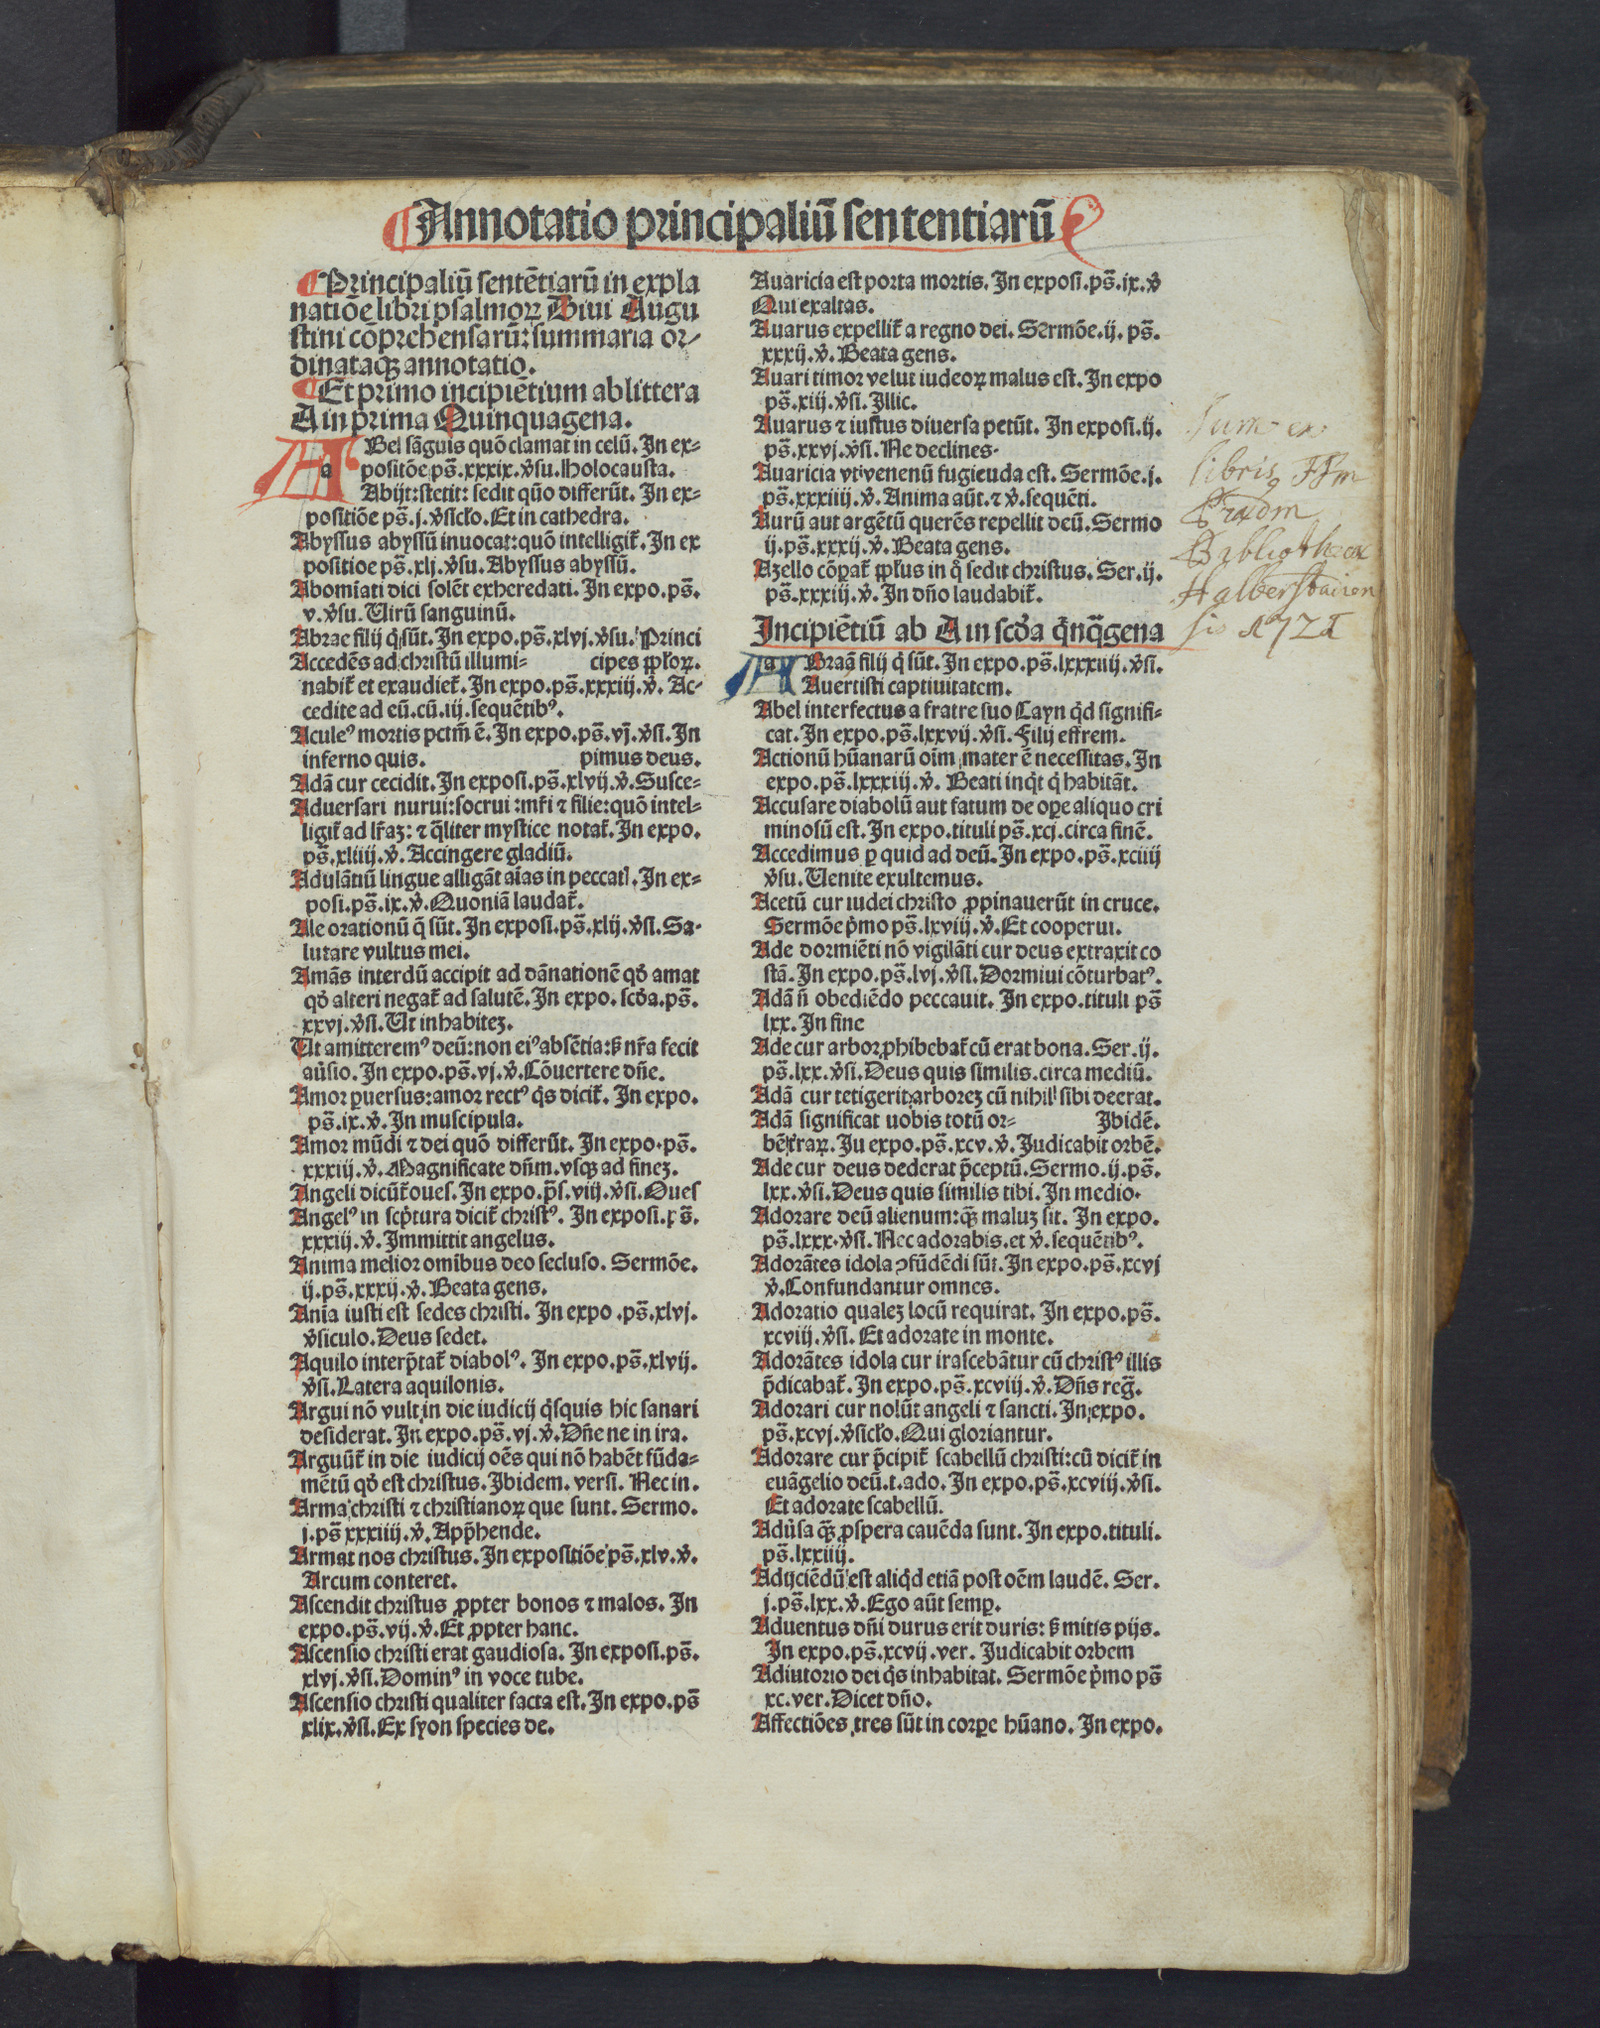 Annotatio principaliū sententiarū
Principaliū sentētiarū in expla
natiōe libri psalmoꝝ Diui Augu
stini cōprehensarū: summaria or-
dinataqꝫ annotatio.
Et primo incipiētium ab littera
A in prima Quinquagena.
ABel sāguis quō clamat in celū. In ex-
positōe ps̄.xxxix.v̓su. Holocausta.
Abijt: stetit: sedit qūo differūt. In ex-
positiōe ps̄.j.v̓siclo. Et in cathedra.
Abyssus abyssū inuocat: quō intelligit̄. In ex
positioe ps̄.xlj.v̓su. Abyssus abyssū.
Abomiati dici solēt exheredati. In expo.ps̄.
v.v̓su. Uirū sanguinū.
Abrae filij q̄ sūt. In expo.ps̄.xlvj.v̓su. Princi
Accedēs ad christū illumi- cipes pplōꝝ.
nabit̄ et exaudiet̄. In expo.ps̄.xxxiij.v̓. Ac-
cedite ad eū.cū.iij.sequētibꝰ.
Aculeꝰ mortis pctm̄ ē. In expo.ps̄.vj.v̓si. In
inferno quis. pimus deus.
Adā cur cecidit. In exposi.ps̄.xlvij.v̓. Susce-
Aduersari nurui: socrui: mr̄i ⁊ filie: quō intel-
ligit̄ ad lr̄aꝫ: ⁊ q̄liter mystice notat̄. In expo.
ps̄.xliiij.v̓. Accingere gladiū.
Adulātiū lingue alligāt aīas in peccatꝭ. In ex-
posi.ps̄.ix.v̓. Quoniā laudat̄.
Ale orationū q̄ sūt. In exposi.ps̄.xlij.v̓si. Sa-
lutare vultus mei.
Amās interdū accipit ad dānationē qd̓ amat
qd̓ alteri negat̄ ad salutē. In expo. scd̓a.ps̄.
xxvj.v̓si. Ut inhabiteꝫ.
Ut amitteremꝰ deū: non eiꝰ absētia: ß nr̄a fecit
au̓sio. In expo.ps̄.vj.v̓. Cōuertere dn̄e.
Amor ꝑuersus: amor rectꝰ q̓s dicit̄. In expo.
ps̄.ix.v̓. In muscipula.
Amor mūdi ⁊ dei quō differūt. In expo.ps̄.
xxxiij.v̓. Magnificate dn̄m. vsqꝫ ad fineꝫ.
Angeli dicūt̄ oues. In expo.p̄s.viij.v̓si. Oues
Angelꝰ in scp̓tura dicit̄ christꝰ. In exposi.ps̄.
xxxiij.v̓. Immittit angelus.
Anima melior omibus deo secluso. Sermōe.
ij.ps̄.xxxij.v̓. Beata gens.
Anīa iusti est sedes christi. In expo.ps̄.xlvj.
v̓siculo. Deus sedet.
Aquilo interp̄tat̄ diabolꝰ. In expo.ps̄.xlvij.
v̓si. Latera aquilonis.
Argui nō vult in die iudicij q̓squis hic sanari
desiderat. In expo.ps̄.vj.v̓. Dn̄e ne in ira.
Arguūt̄ in die iudicij oēs qui nō habēt fūda-
mētū qd̓ est christus. Ibidem. versi. Nec in.
Arma christi ⁊ christianoꝝ que sunt. Sermo.
j.ps̄ xxxiiij.v̓. App̄hende.
Armat nos christus. In expositiōe ps̄.xlv.v̓.
Arcum conteret.
Ascendit christus ꝓpter bonos ⁊ malos. In
expo.ps̄.vij.v̓. Et ꝓpter hanc.
Ascensio christi erat gaudiosa. In exposi.ps̄.
xlvj.v̓si. Dominꝰ in voce tube.
Ascensio christi qualiter facta est. In expo.ps̄
xlix.v̓si. Ex syon species de.
Auaricia est porta mortis. In exposi.ps̄.ix.v̓
Qui exaltas.
Auarus expellit̄ a regno dei. Sermōe.ij. ps̄.
xxxij.v̓. Beata gens.
Auari timor velut iudeoꝝ malus est. In expo
ps̄.xiij.v̓si. Illic.
Auarus ⁊ iustus diuersa petūt. In exposi.ij.
ps̄.xxvj.v̓si. Ne declines.
Auaricia vti venenū fugieuda est. Sermōe.j.
ps̄.xxxiiij.v̓. Anima aūt. ⁊ v̓.sequēti.
Aurū aut argētū querēs repellit deū. Sermo
ij.ps̄.xxxij.v̓. Beata gens.
Azello cōꝑat̄ pplus in q̓ sedit christus. Ser.ij.
ps̄.xxxiij.v̓. In dn̄o laudabit̄.
Incipiētiū ab A in scd̓a q̓nq̄gena
ABraā filij q̓ sūt. In expo.ps̄.lxxxiiij.v̓si.
Auertisti captiuitatem.
Abel interfectus a fratre suo Cayn q̓d signifi-
cat. In expo.ps̄.lxxvij.v̓si. Filij effrem.
Actionū hūanarū oīm mater ē necessitas. In
expo.ps̄.lxxxiij.v̓. Beati inq̓t q̓ habitāt.
Accusare diabolū aut fatum de oꝑe aliquo cri
minosū est. In expo.tituli ps̄.xcj.circa finē.
Accedimus ꝑ quid ad deū. In expo.ps̄.xciiij
v̓su. Uenite exultemus.
Acetū cur iudei christo ꝓpinauerūt in cruce.
Sermōe p̓mo ps̄.lxviij.v̓. Et cooperui.
Ade dormiēti nō vigilāti cur deus extraxit co
stā. In expo.ps̄.lvj.v̓si. Dormiui cōturbatꝰ.
Adā n̄ obediēdo peccauit. In expo.tituli ps̄
lxx. In fine
Ade cur arbor ꝓhibebat̄ cū erat bona. Ser.ij.
ps̄.lxx.v̓si. Deus quis similis.circa mediū.
Adā cur tetigerit arboreꝫ cū nihil sibi deerat.
Adā significat uobis totū or- Ibidē.
bē t̓raꝝ. Iu expo.ps̄.xcv.v̓. Iudicabit orbē.
Ade cur deus dederat p̄ceptū. Sermo.ij.ps̄.
lxx.v̓si. Deus quis similis tibi. In medio.
Adorare deū alienum: qꝫ̄ maluꝫ sit. In expo.
ps̄.lxxx.v̓si. Nec adorabis.et v̓.sequētibꝰ.
Adorātes idola ꝯfūdēdi sūt. In expo.ps̄.xcvj
v̓. Confundantur omnes.
Adoratio qualeꝫ locū requirat. In expo.ps̄.
xcviij.v̓si. Et adorate in monte.
Adorātes idola cur irascebātur cū christꝰ illis
p̄dicabat̄. In expo.ps̄.xcviij.v̓. Dn̄s reḡ.
Adorari cur nolūt angeli ⁊ sancti. In expo.
ps̄.xcvj.v̓siclo. Qui gloriantur.
Adorare cur p̄cipit̄ scabellū christi: cū dicit̄ in
euāgelio deū.t.ado. In expo.ps̄.xcviij.v̓si.
Et adorate scabellū.
Adu̓sa qꝫ̄ ꝓspera cauēda sunt. In expo.tituli.
ps̄.lxxiiij.
Adijciēdū est aliq̓d etiā post oēm laudē. Ser.
j.ps̄.lxx.v̓. Ego aūt semꝑ.
Aduentus dn̄i durus erit duris: ß mitis pijs.
In expo.ps̄.xcvij.ver. Iudicabit orbem
Adiutorio dei q̓s inhabitat. Sermōe p̓mo ps̄
xc.ver. Dicet dn̄o.
Affectiōes tres sūt in corꝑe hūano. In expo.
Sum ex
libris FFm
Prædm
Bibliothecæ
Halberstadien
sis 1721